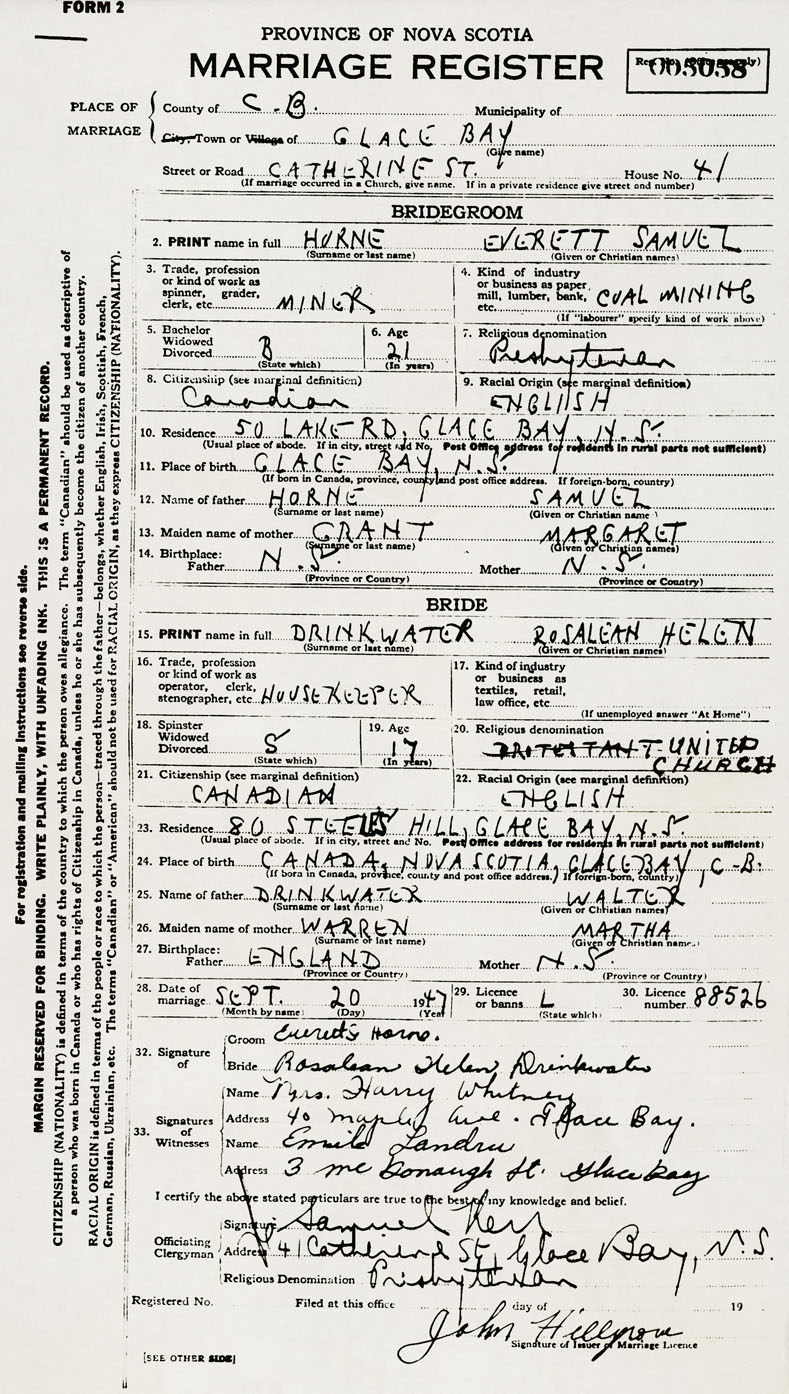 FORM 2
PROVINCE OF NOVA SCOTIA
MARRIAGE REGISTER
005058
PLACE OF MARRIAGE
County of C.B. Municipality of
City, Town or Village of GLACE BAY
(Give name)
Street or Road CATHERINE ST. House No. 41
(If marriage occurred in a Church, give name. If in a private residence give street and number)
BRIDEGROOM
2. PRINT name in full HORNE EVERETT SAMUEL
(Surname or last name) (Given or Christian names)
3. Trade, profession or kind of work as spinner, grader, clerk, etc. MINER
4. Kind of industry or business as paper mill, lumber, bank, etc. COAL MINING
(If "labourer" specify kind of work above)
5. Bachelor Widowed Divorced B
(State which)
6. Age 21
(In years)
7. Religious denomination Presbyterian
8. Citizenship (see marginal definition) Canadian
9. Racial Origin (see marginal definition) ENGLIISH
10. Residence 50 LAKE RD, GLACE BAY, N.S.
(Usual place of abode. If in city, street and No. Post Office address for residents in rural parts not sufficient)
11. Place of birth GLACE BAY, N.S.
(If born in Canada, province, county and post office address. If foreign-born, country)
12. Name of father HORNE SAMUEL
(Surname or last name) (Given or Christian name)
13. Maiden name of mother GRANT MARGARET
(Surname or last name) (Given or Christian names)
14. Birthplace: Father N.S. Mother N.S.
(Province or Country) (Province or Country)
BRIDE
15. PRINT name in full DRINKWATER ROSALEAN HELEN
(Surname or last name) (Given or Christian names)
16. Trade, profession or kind of work as operator, clerk, stenographer, etc. HOUSEKEEPER
17. Kind of industry or business as textiles, retail, law office, etc.
(If unemployed answer "At Home")
18. Spinster Widowed Divorced S
(State which)
19. Age 17
(In years)
20. Religious denomination PROTESTANT UNITED CHURCH
21. Citizenship (see marginal definition) CANADIAN
22. Racial Origin (see marginal definition) ENGLISH
23. Residence 80 STEELES HILL, GLACE BAY, N.S.
(Usual place of abode. If in city, street and No. Post Office address for residents in rural parts not sufficient)
24. Place of birth CANADA, NOVA SCOTIA, GLACE BAY, C-B.
(If born in Canada, province, county and post office address. If foreign-born, country)
25. Name of father DRINKWATER WALTER
(Surname or last name) (Given or Christian names)
26. Maiden name of mother WARREN MARTHA
(Surname or last name) (Given or Christian names)
27. Birthplace: Father ENGLAND Mother N.S.
(Province or Country) (Province or Country)
28. Date of marriage SEPT. 20 1947
(Month by name) (Day) (Year)
29. Licence or banns L
(State which)
30. Licence number 88526
32. Signature of
Groom Everett Horne.
Bride Rosalean Helen Drinkwater
33. Signatures of Witnesses
Name Mrs. Harry Whitney
Address 40 Maple Ave. Glace Bay.
Name Emile Landry
Address 3 McDonaugh St. Glace Bay
I certify the above stated particulars are true to the best of my knowledge and belief.
Officiating Clergyman
Signature Samuel Kerr
Address 41 Catherine St, Glace Bay, N.S.
Religious Denomination Presbyterian
Registered No. Filed at this office day of 19
John Hillgrove
Signature of Issuer of Marriage Licence
[SEE OTHER SIDE]
For registration and mailing instructions see reverse side.
MARGIN RESERVED FOR BINDING. WRITE PLAINLY, WITH UNFADING INK. THIS IS A PERMANENT RECORD.
CITIZENSHIP (NATIONALITY) is defined in terms of the country to which the person owes allegiance. The term "Canadian" should be used as descriptive of
a person who was born in Canada or who has rights of Citizenship in Canada, unless he or she has subsequently become the citizen of another country.
RACIAL ORIGIN is defined in terms of the people or race to which the person—traced through the father—belongs, whether English, Irish, Scottish, French,
German, Russian, Ukrainian, etc. The terms "Canadian" or "American" should not be used for RACIAL ORIGIN, as they express CITIZENSHIP (NATIONALITY).